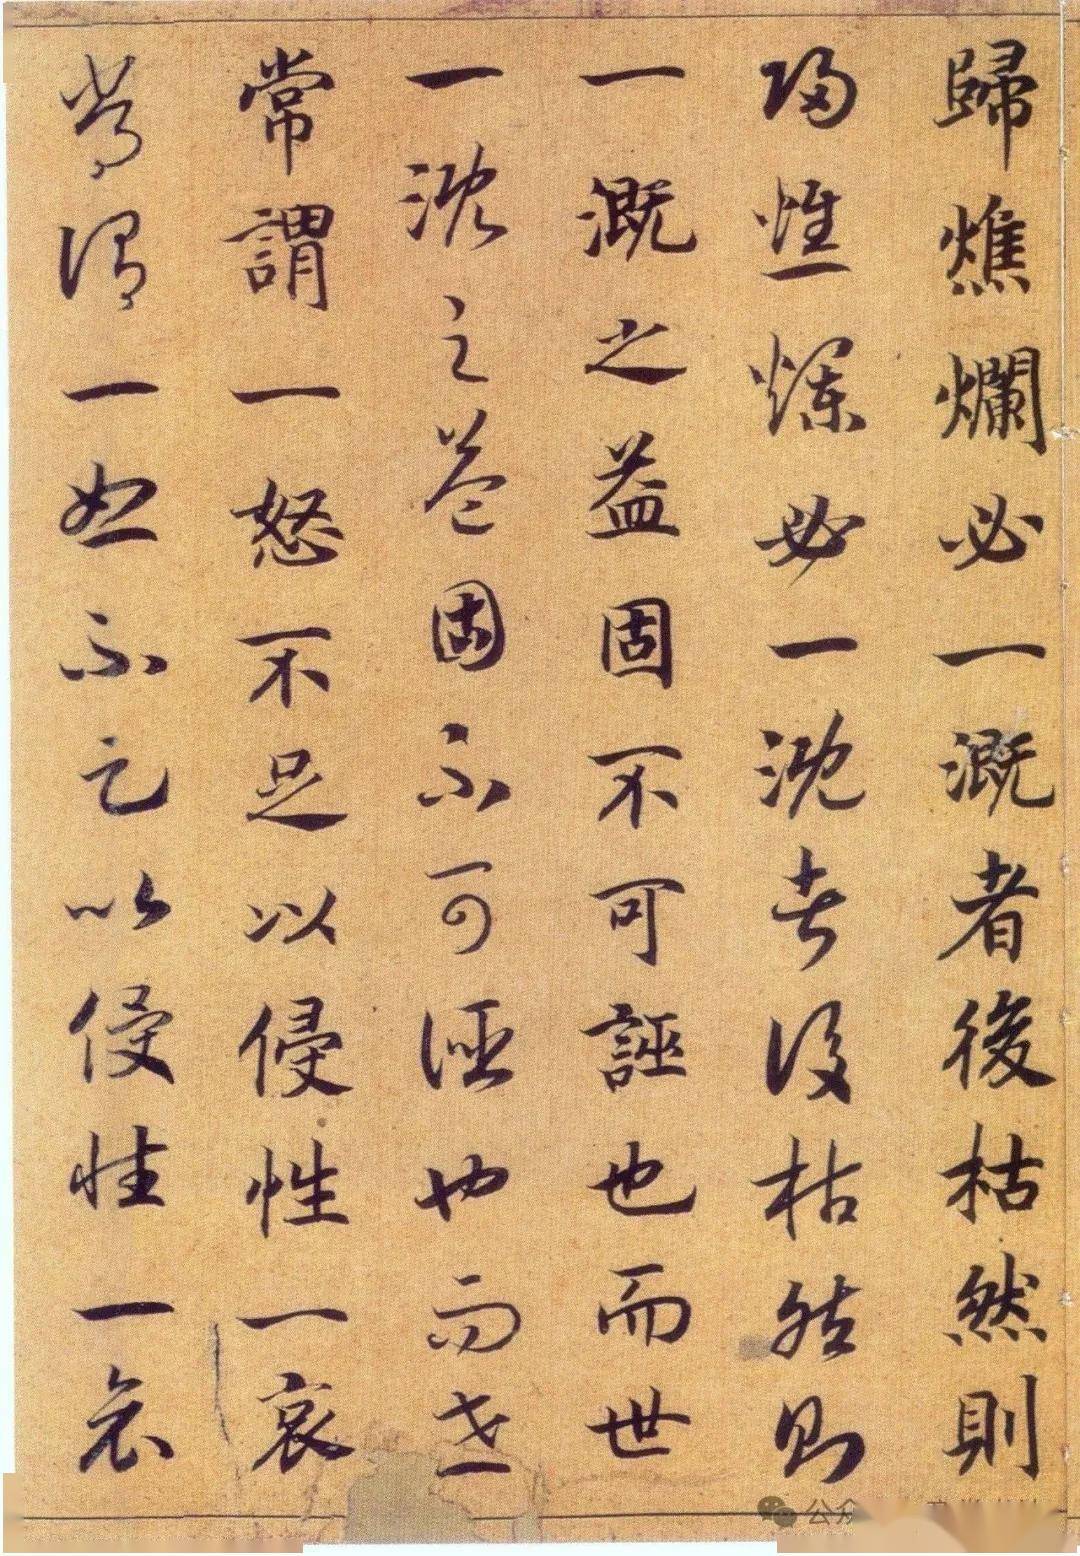 歸燋爛必一溉者後枯然則
歸燋爛必一溉者後枯然則
一溉之益固不可誣也而世
一溉之益固不可誣也而世
常謂一怒不足以侵性一哀
常謂一怒不足以侵性一哀
公众